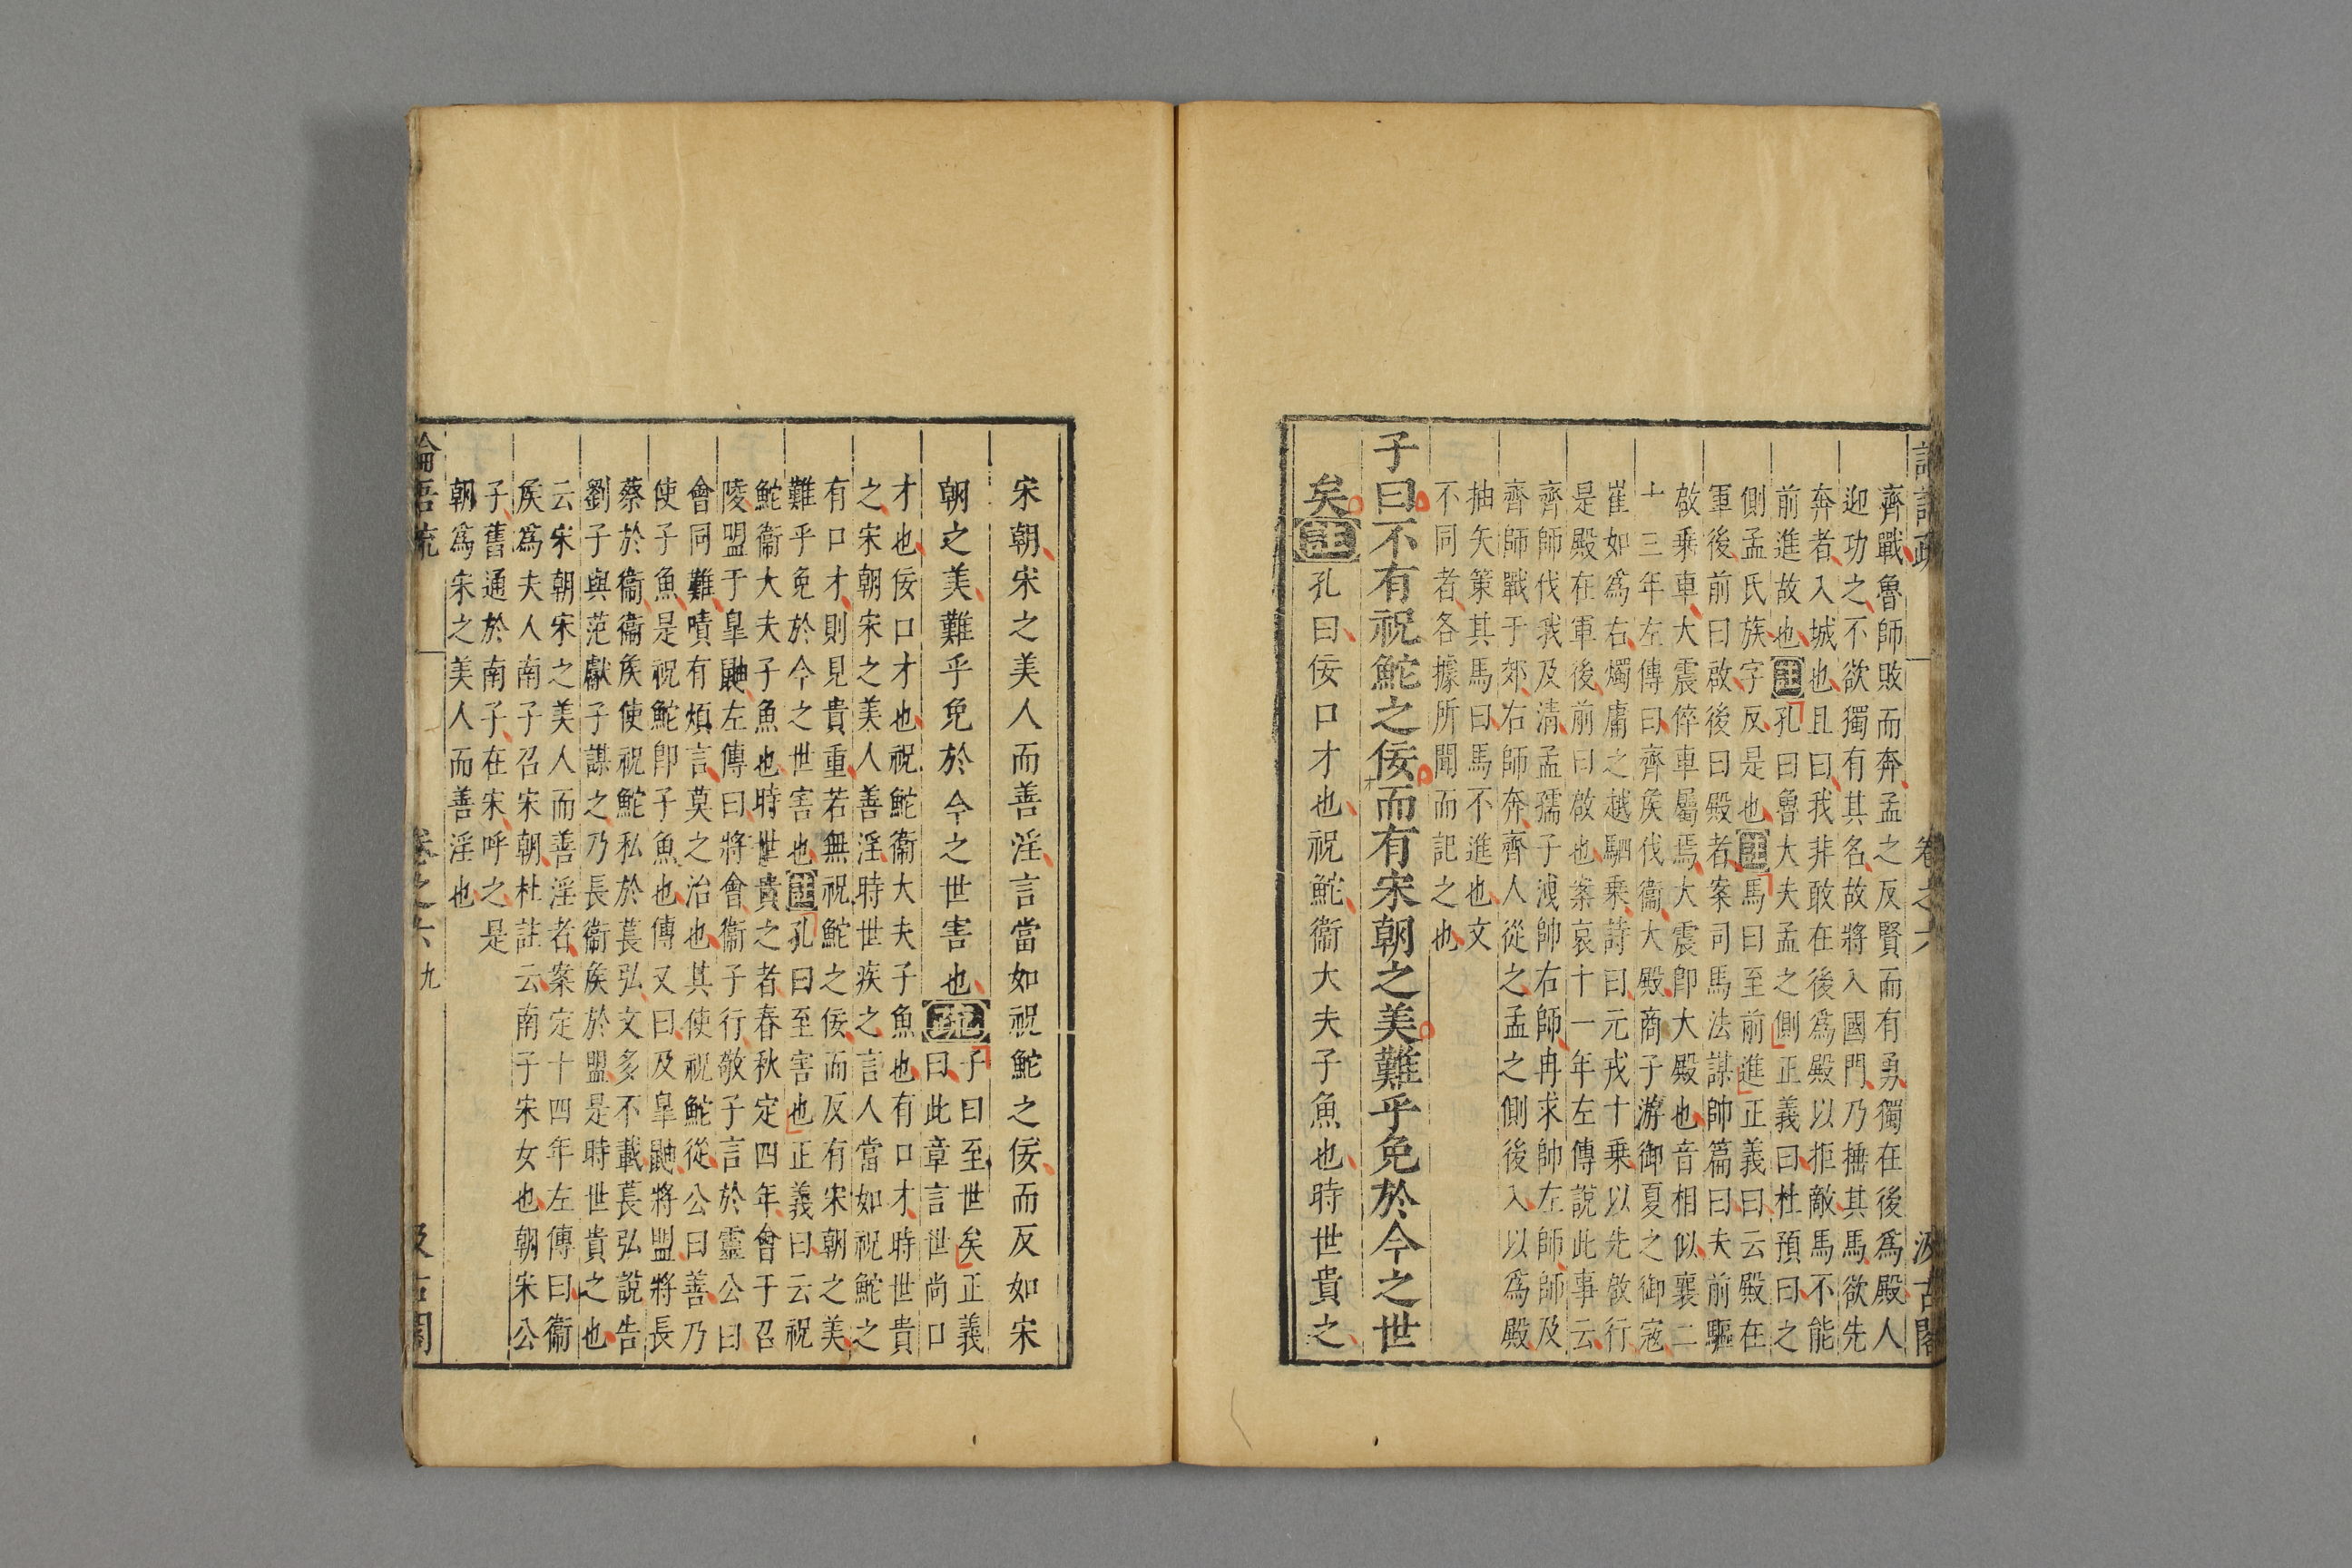 論語疏 卷之六 汲古閣
齊戰魯師敗而奔孟之反賢而有勇獨在後爲殿人
迎功之不欲獨有其名故將入國門乃捶其馬欲先
奔者入城也且曰我非敢在後爲殿以拒敵馬不能
前進故也註孔曰魯大夫孟之側正義曰杜預曰之
側孟氏族字反是也註馬曰至前進正義曰云殿在
軍後前曰啟後曰殿者案司馬法謀帥篇曰夫前驅
啟乗車大震倅車屬焉大震即大殿也音相似襄二
十三年左傳曰齊矦伐衞大殿商子游御夏之御寇
崔如爲右燭庸之越駟乗詩曰元戎十乗以先啟行
是殿在軍後前曰啟也案哀十一年左傳說此事云
齊師伐我及清孟孺子洩帥右師冉求帥左師師及
齊師戰于郊右師奔齊人從之孟之側後入以爲殿
抽矢策其馬曰馬不進也文
不同者各據所聞而記之也
子曰不有祝鮀之佞而有宋朝之美難乎免於今之世
矣註孔曰佞口才也祝鮀衞大夫子魚也時世貴之
宋朝宋之美人而善淫言當如祝鮀之佞而反如宋
朝之美難乎免於今之世害也疏子曰至世矣正義
曰此章言世尚口
才也佞口才也祝鮀衞大夫子魚也有口才時世貴
之宋朝宋之美人善淫時世疾之言人當如祝鮀之
有口才則見貴重若無祝鮀之佞而反有宋朝之美
難乎免於今之世害也註孔曰至害也正義曰云祝
鮀衞大夫子魚也時世貴之者春秋定四年會于召
陵盟于皐鼬左傳曰將會衞子行敬子言於靈公曰
會同難嘖有煩言莫之治也其使祝鮀從公曰善乃
使子魚是祝鮀卽子魚也傳又曰及皐鼬將盟將長
蔡於衞衞矦使祝鮀私於萇弘文多不載萇弘說告
劉子與范獻子謀之乃長衞矦於盟是時世貴之也
云宋朝宋之美人而善淫者案定十四年左傳曰衞
矦爲夫人南子召宋朝杜註云南子宋女也朝宋公
子舊通於南子在宋呼之是
朝爲宋之美人而善淫也
論語疏 卷之六 九 汲古閣